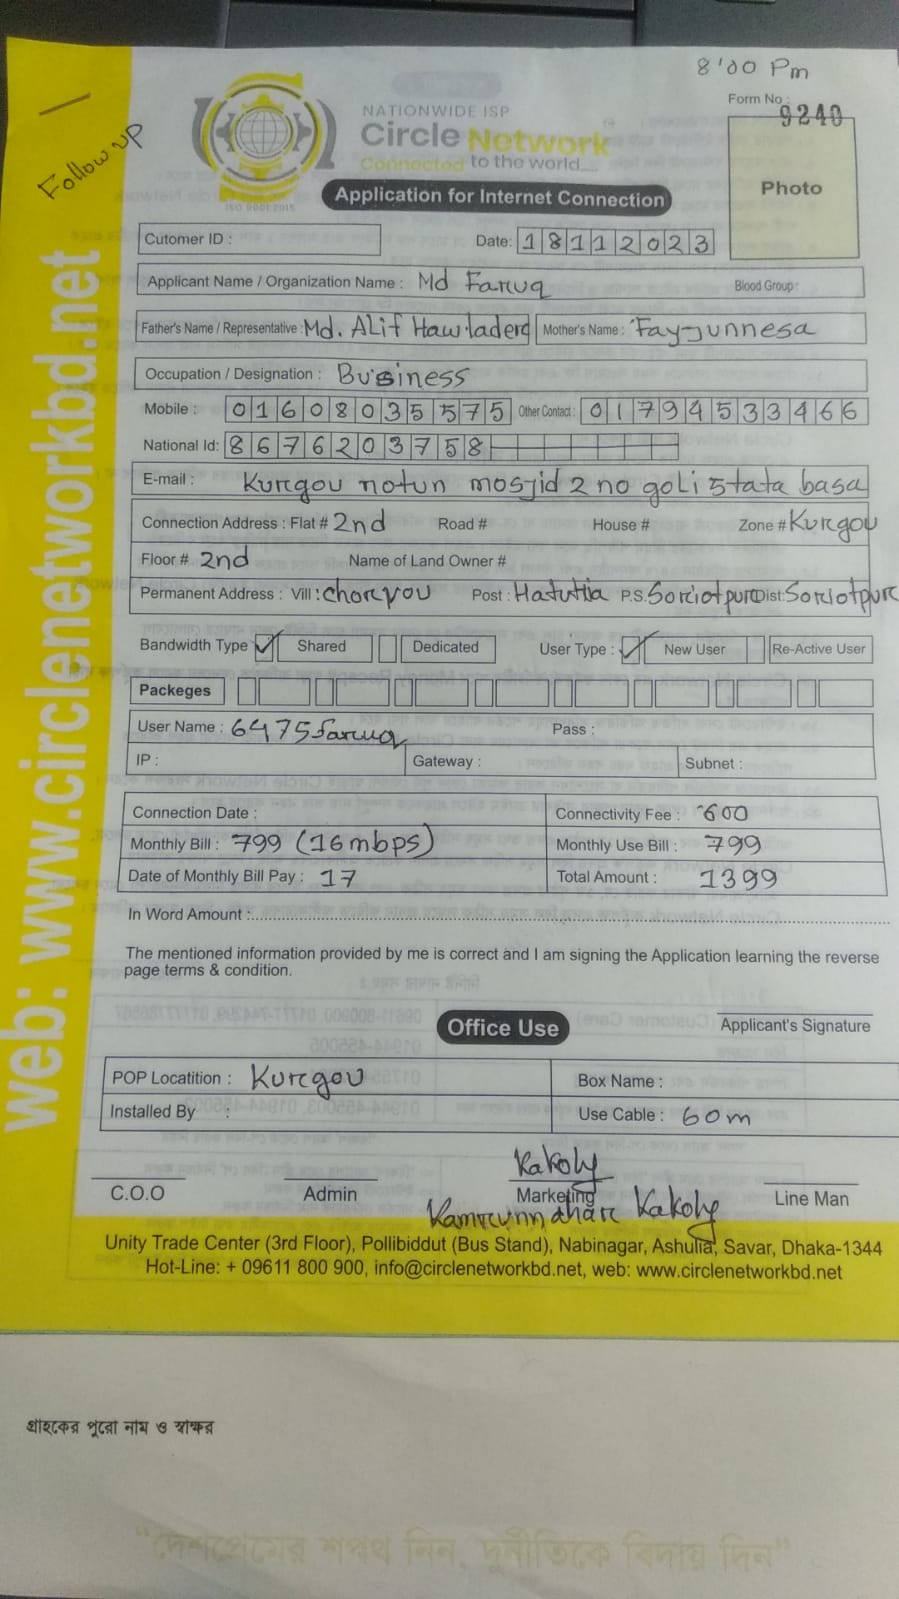 8'00 Pm
Follow up
NATIONWIDE ISP
Circle Network
Connected to the world.....
ISO 9001:2015
Form No : 9240
Photo
Application for Internet Connection
Cutomer ID :
Date: 18112023
Applicant Name / Organization Name : Md Faruq
Blood Group:
Father's Name / Representative : Md. Alif Hawladerc
Mother's Name : Fay-Junnesa
Occupation / Designation : Business
Mobile : 01608035575
Other Contact : 01794533466
National Id: 8676203758
E-mail : Kurgou notun mosjid 2 no goli 5 tata basa
Connection Address : Flat # 2nd Road # House # Zone # Kurgou
Floor # 2nd Name of Land Owner #
Permanent Address : Vill : Post : P.S. Dist:
Bandwidth Type ✓ Shared Dedicated User Type : ✓ New User Re-Active User
Packeges
User Name : 6475faruq Pass :
IP : Gateway : Subnet :
Connection Date : Connectivity Fee : 600
Monthly Bill : 799 (16mbps) Monthly Use Bill : 799
Date of Monthly Bill Pay : 17 Total Amount : 1399
In Word Amount :
The mentioned information provided by me is correct and I am signing the Application learning the reverse
page terms & condition.
Office Use
Applicant's Signature
POP Locatition : Kurgou Box Name :
Installed By : Use Cable : 60m
Kakoly
C.O.O Admin Marketing Line Man
Kakoly
Unity Trade Center (3rd Floor), Pollibiddut (Bus Stand), Nabinagar, Ashulia, Savar, Dhaka-1344
Hot-Line: + 09611 800 900, info@circlenetworkbd.net, web: www.circlenetworkbd.net
web: www.circlenetworkbd.net
গ্রাহকের পুরো নাম ও স্বাক্ষর
“দেশপ্রেমের শপথ নিন, দুর্নীতিকে বিদায় দিন”